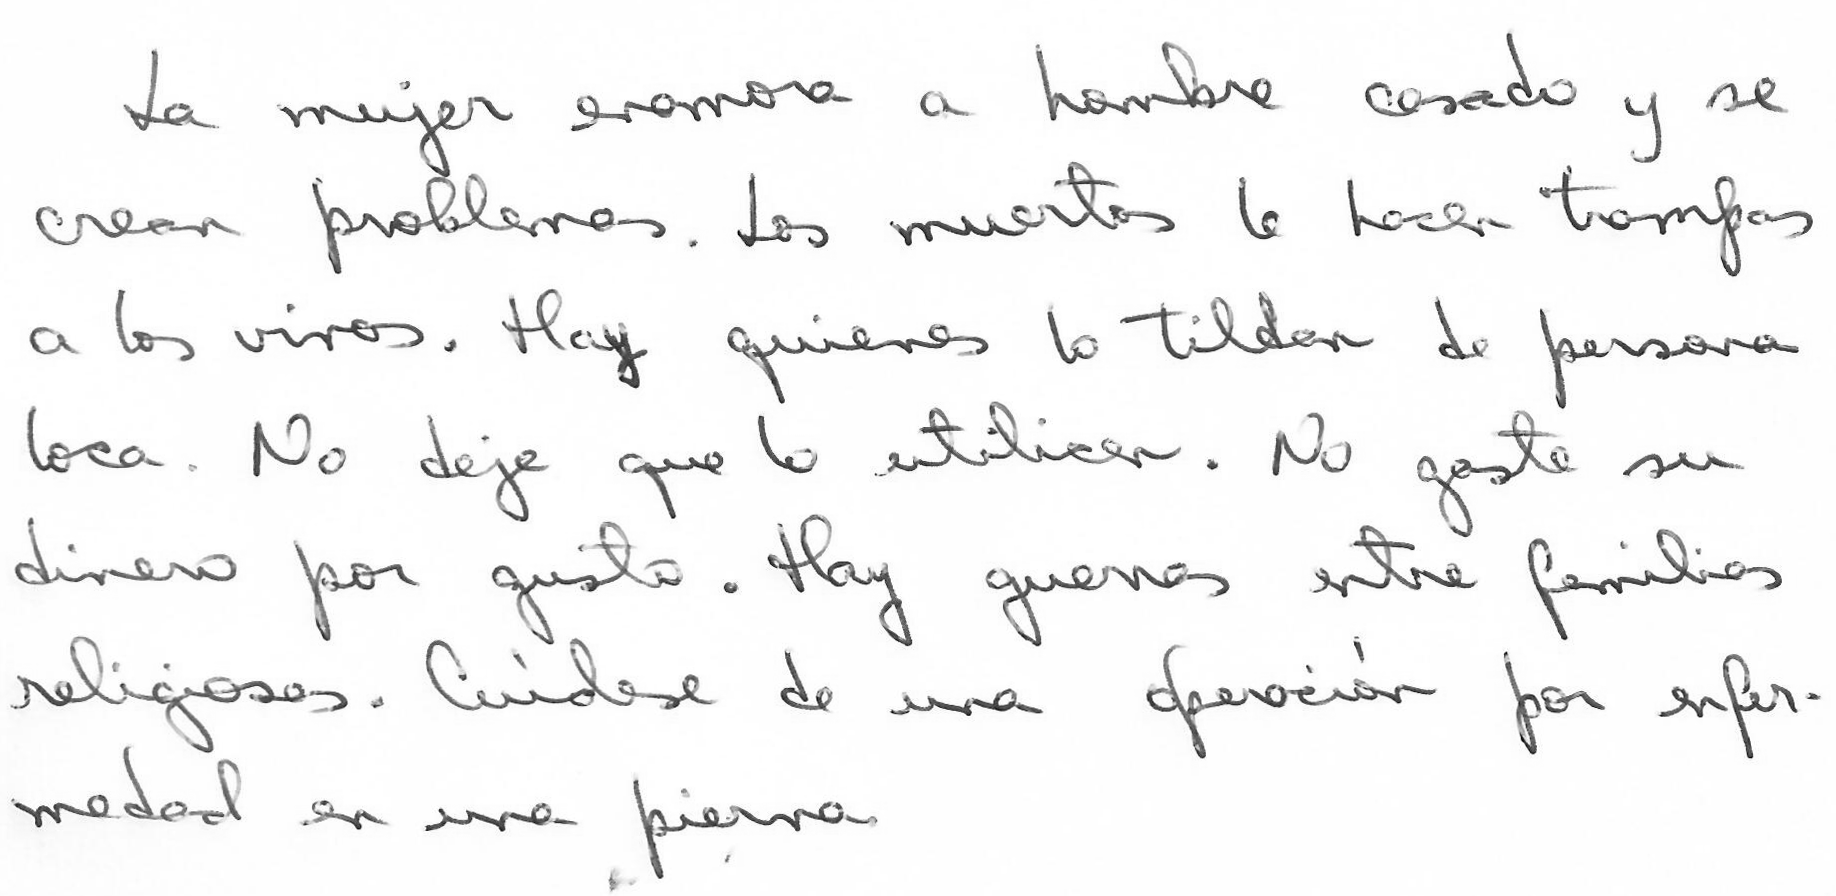 La mujer enamora a hombre casado y se
crean problemas. Los muertos le hacen trampas
a los vivos. Hay quienes lo tildan de persona
loca. No deje que lo utilicen. No gaste su
dinero por gusto. Hay guerras entre familias
religiosas. Cuídese de una operación por enfer-
medad en una pierna.